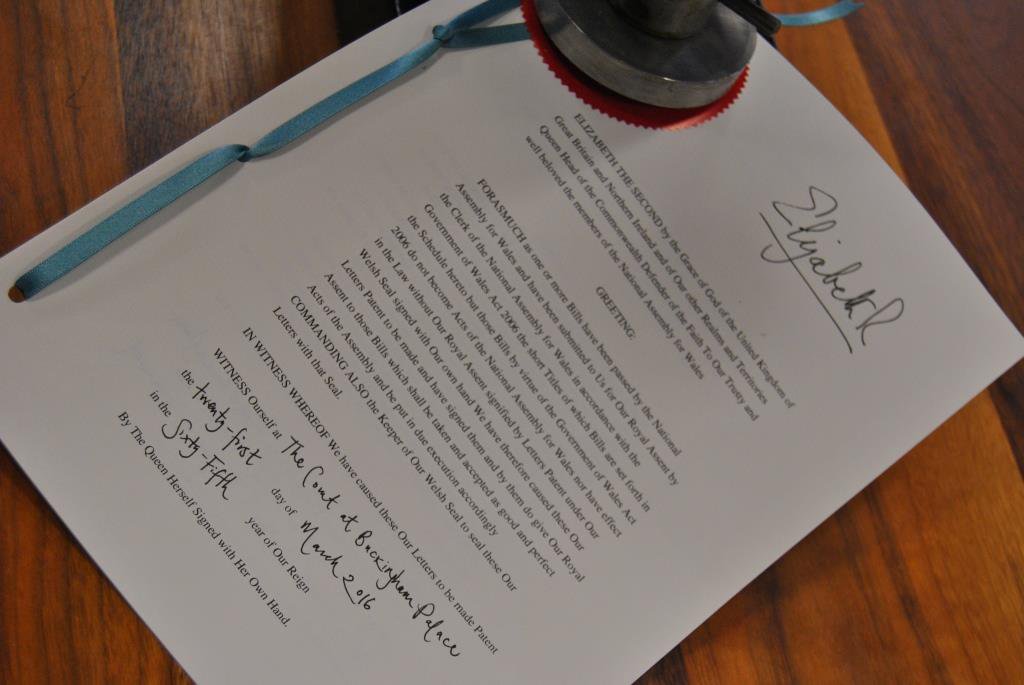 Elizabeth R
ELIZABETH THE SECOND by the Grace of God of the United Kingdom of
Great Britain and Northern Ireland and of Our other Realms and Territories
Queen Head of the Commonwealth Defender of the Faith To Our Trusty and
well beloved the members of the National Assembly for Wales
GREETING:
FORASMUCH as one or more Bills have been passed by the National
Assembly for Wales and have been submitted to Us for Our Royal Assent by
the Clerk of the National Assembly for Wales in accordance with the
Government of Wales Act 2006 the short Titles of which Bills are set forth in
the Schedule hereto but those Bills by virtue of the Government of Wales Act
2006 do not become Acts of the National Assembly for Wales nor have effect
in the Law without Our Royal Assent signified by Letters Patent under Our
Welsh Seal signed with Our own hand We have therefore caused these Our
Letters Patent to be made and have signed them and by them do give Our Royal
Assent to those Bills which shall be taken and accepted as good and perfect
Acts of the Assembly and be put in due execution accordingly
COMMANDING ALSO the Keeper of Our Welsh Seal to seal these Our
Letters with that Seal.
IN WITNESS WHEREOF We have caused these Our Letters to be made Patent
WITNESS Ourself at The Court at Buckingham Palace
the twenty-first day of March 2016
in the Sixty-Fifth year of Our Reign
By The Queen Herself Signed with Her Own Hand.